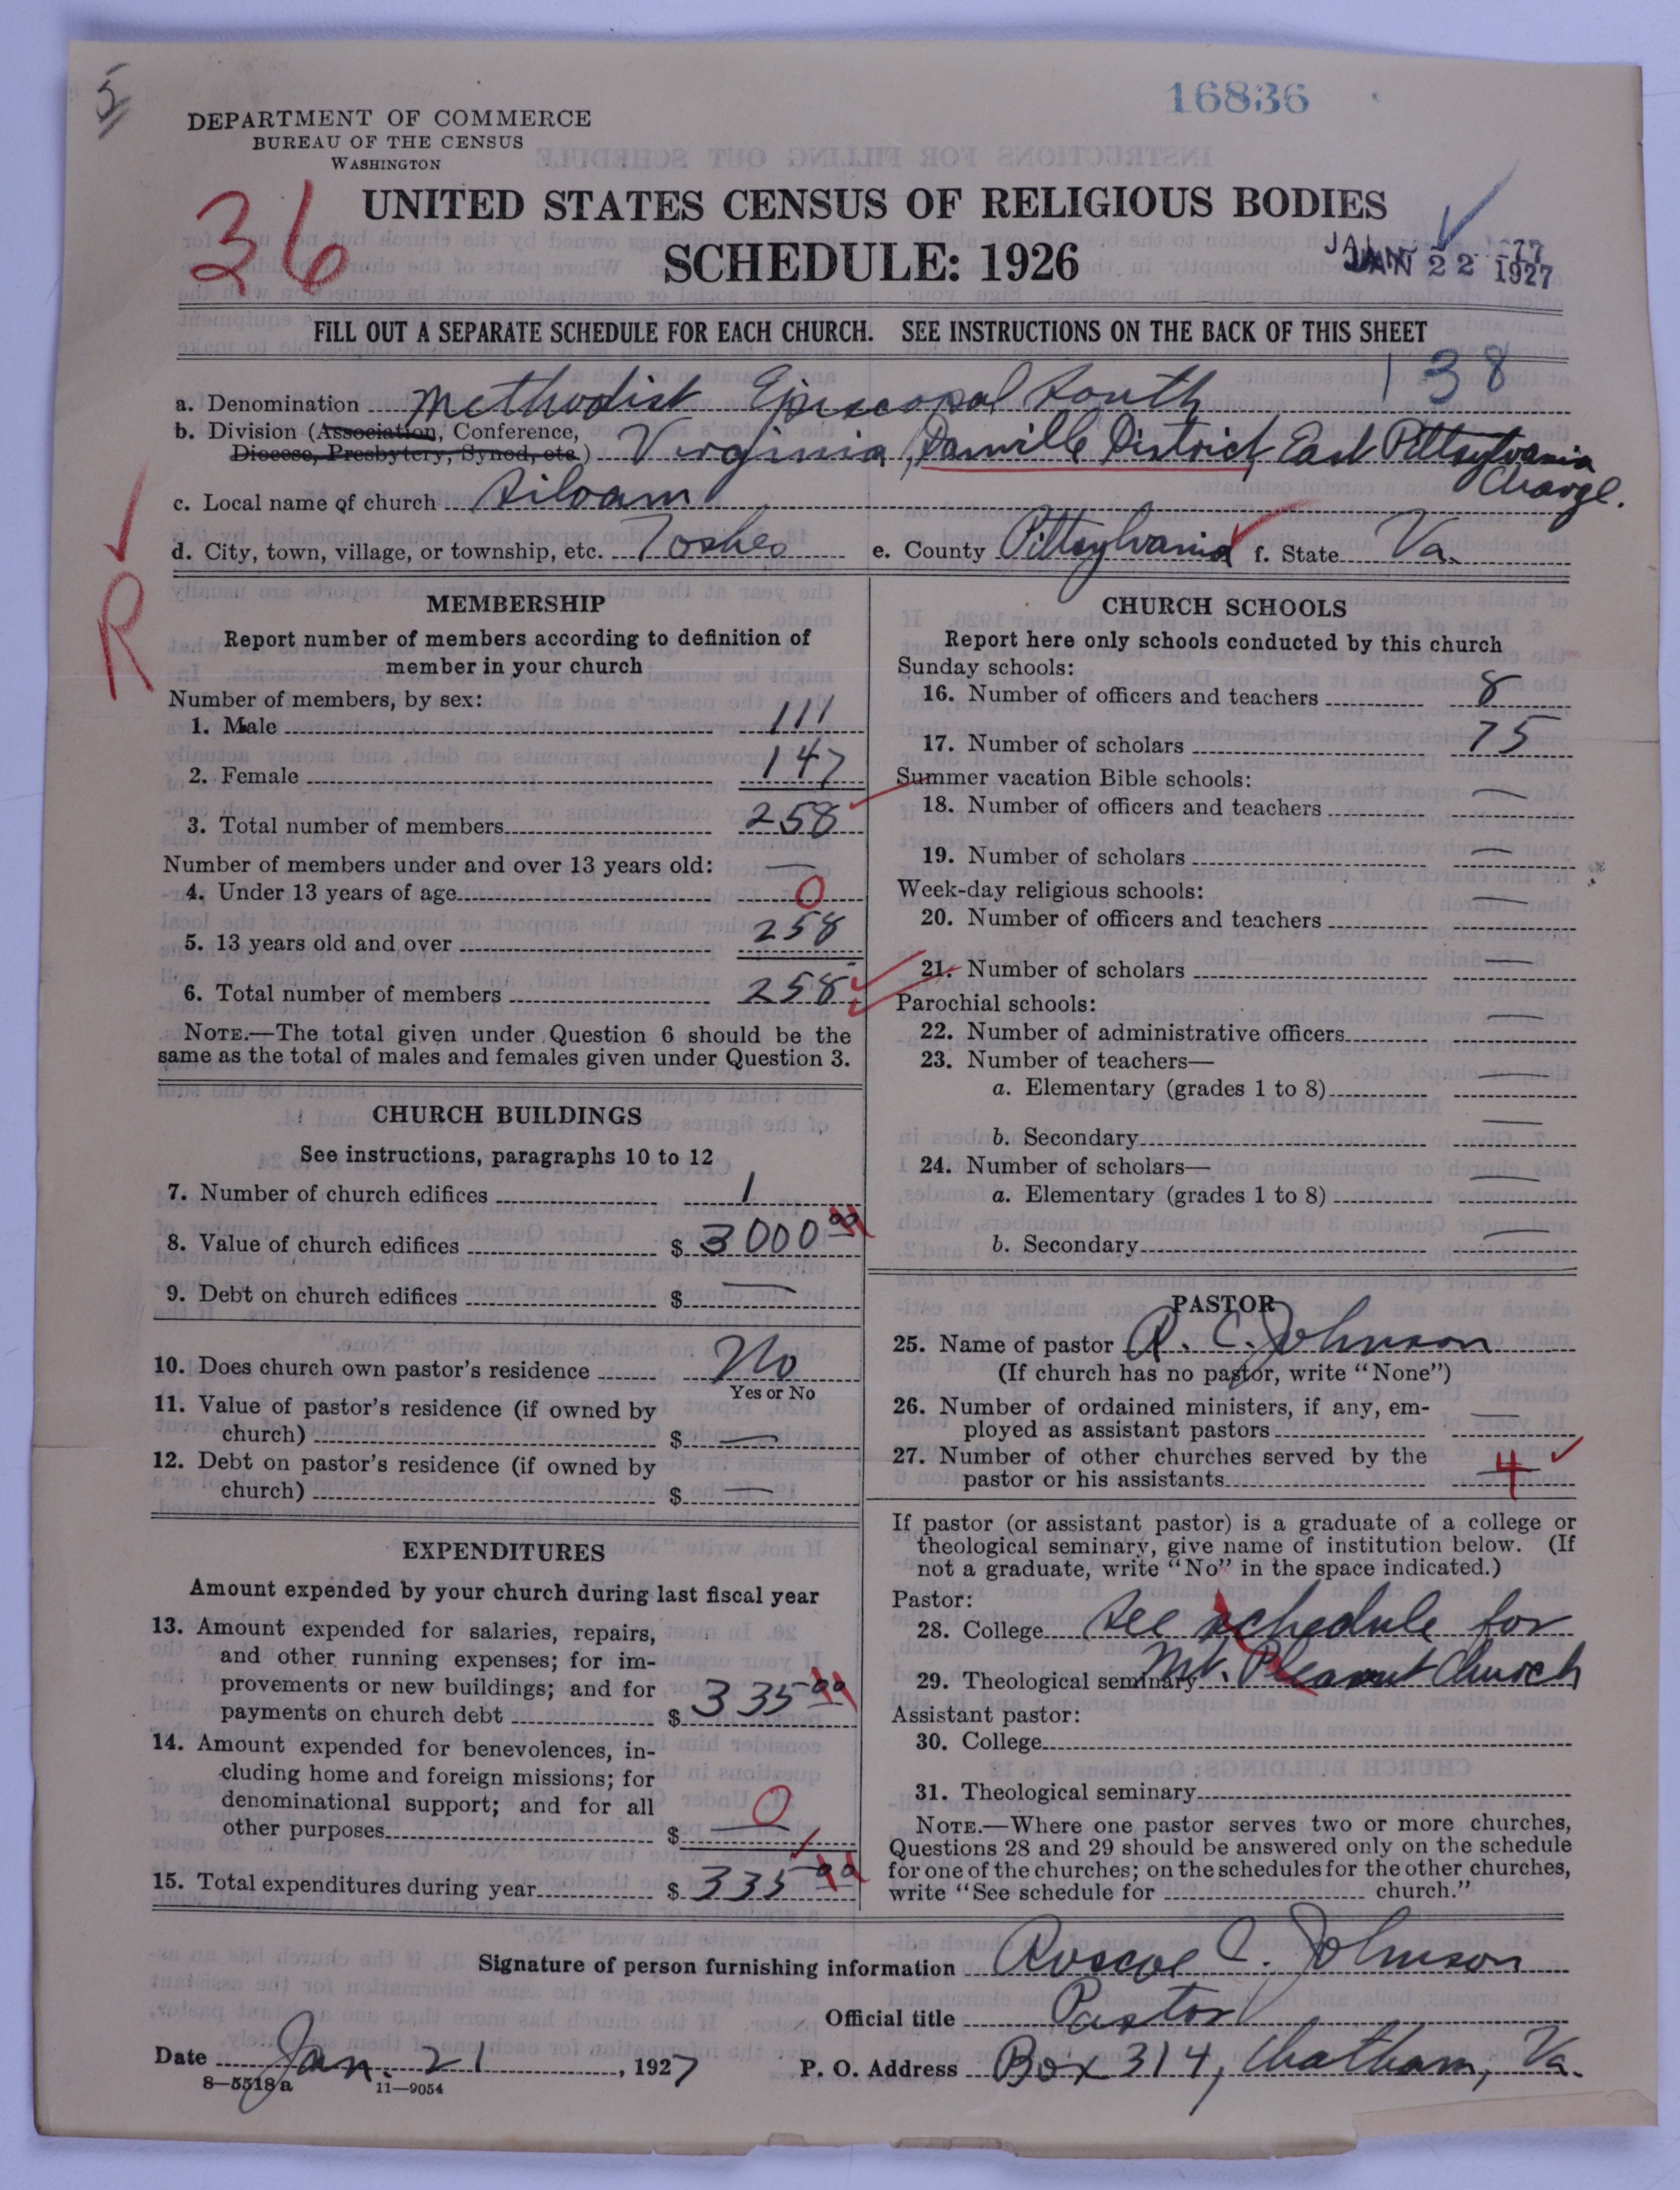 5
16836
DEPARTMENT OF COMMERCE
BUREAU OF THE CENSUS
WASHINGTON
36
UNITED STATES CENSUS OF RELIGIOUS BODIES
SCHEDULE: 1926
JAN 22 1927
FILL OUT A SEPARATE SCHEDULE FOR EACH CHURCH. SEE INSTRUCTIONS ON THE BACK OF THIS SHEET
138
a. Denomination Methodist Episcopal South
b. Division (Association, Conference,
Diocese, Presbytery, Synod, etc.) Virginia, Danville District, East Pittsylvania
Charge.
c. Local name of church Siloam
d. City, town, village, or township, etc. Toshes e. County Pittsylvania f. State Va.
R
MEMBERSHIP
Report number of members according to definition of
member in your church
Number of members, by sex:
1. Male 111
2. Female 147
3. Total number of members 258
Number of members under and over 13 years old: —
4. Under 13 years of age 0
5. 13 years old and over 258
6. Total number of members 258
NOTE.—The total given under Question 6 should be the
same as the total of males and females given under Question 3.
CHURCH BUILDINGS
See instructions, paragraphs 10 to 12
7. Number of church edifices 1
8. Value of church edifices $ 3000 00
9. Debt on church edifices $ —
10. Does church own pastor's residence No
Yes or No
11. Value of pastor's residence (if owned by
church) $ —
12. Debt on pastor's residence (if owned by
church) $ —
EXPENDITURES
Amount expended by your church during last fiscal year
13. Amount expended for salaries, repairs,
and other running expenses; for im-
provements or new buildings; and for
payments on church debt $ 335 00
14. Amount expended for benevolences, in-
cluding home and foreign missions; for
denominational support; and for all
other purposes $ — 0
15. Total expenditures during year $ 335 00
CHURCH SCHOOLS
Report here only schools conducted by this church
Sunday schools:
16. Number of officers and teachers 8
17. Number of scholars 75
Summer vacation Bible schools:
18. Number of officers and teachers —
19. Number of scholars —
Week-day religious schools:
20. Number of officers and teachers —
21. Number of scholars —
Parochial schools:
22. Number of administrative officers —
23. Number of teachers—
a. Elementary (grades 1 to 8) —
b. Secondary —
24. Number of scholars—
a. Elementary (grades 1 to 8) —
b. Secondary —
PASTOR
25. Name of pastor R. C. Johnson
(If church has no pastor, write "None")
26. Number of ordained ministers, if any, em-
ployed as assistant pastors —
27. Number of other churches served by the
pastor or his assistants 4
If pastor (or assistant pastor) is a graduate of a college or
theological seminary, give name of institution below. (If
not a graduate, write "No" in the space indicated.)
Pastor:
28. College See schedule for
29. Theological seminary Mt. Pleasant Church
Assistant pastor:
30. College
31. Theological seminary
NOTE.—Where one pastor serves two or more churches,
Questions 28 and 29 should be answered only on the schedule
for one of the churches; on the schedules for the other churches,
write "See schedule for church."
Signature of person furnishing information Roscoe C. Johnson
Official title Pastor
Date Jan. 21, 1927 P. O. Address Box 314, Chatham, Va.
8—5518a 11—9054